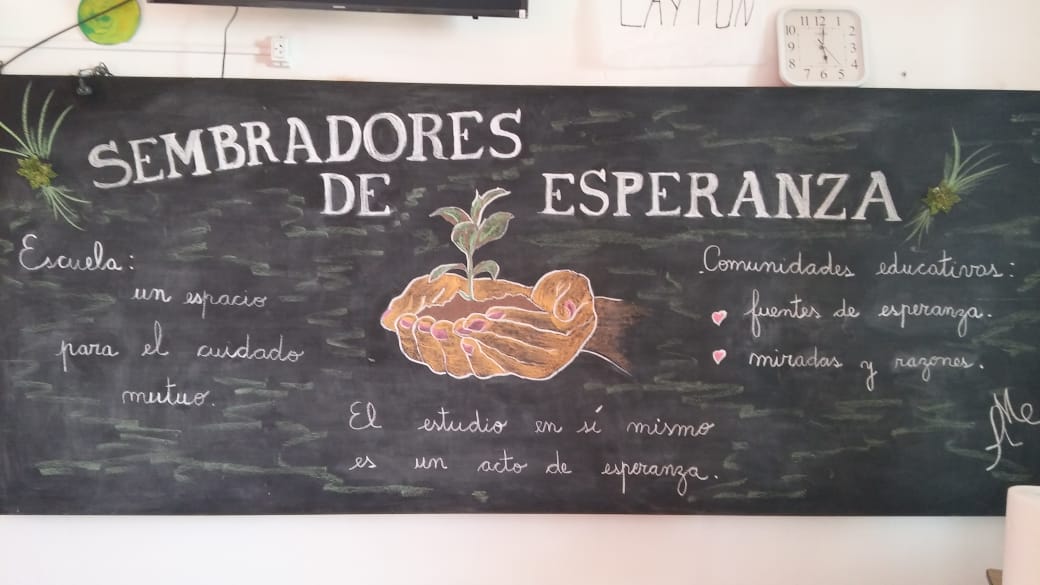 LAYTON
11 12 1
10 2
9 3
8 4
7 6 5
SEMBRADORES
DE ESPERANZA
Escuela:
un espacio
para el cuidado
mutuo.
Comunidades educativas:
fuentes de esperanza.
miradas y razones.
El estudio en sí mismo
es un acto de esperanza.